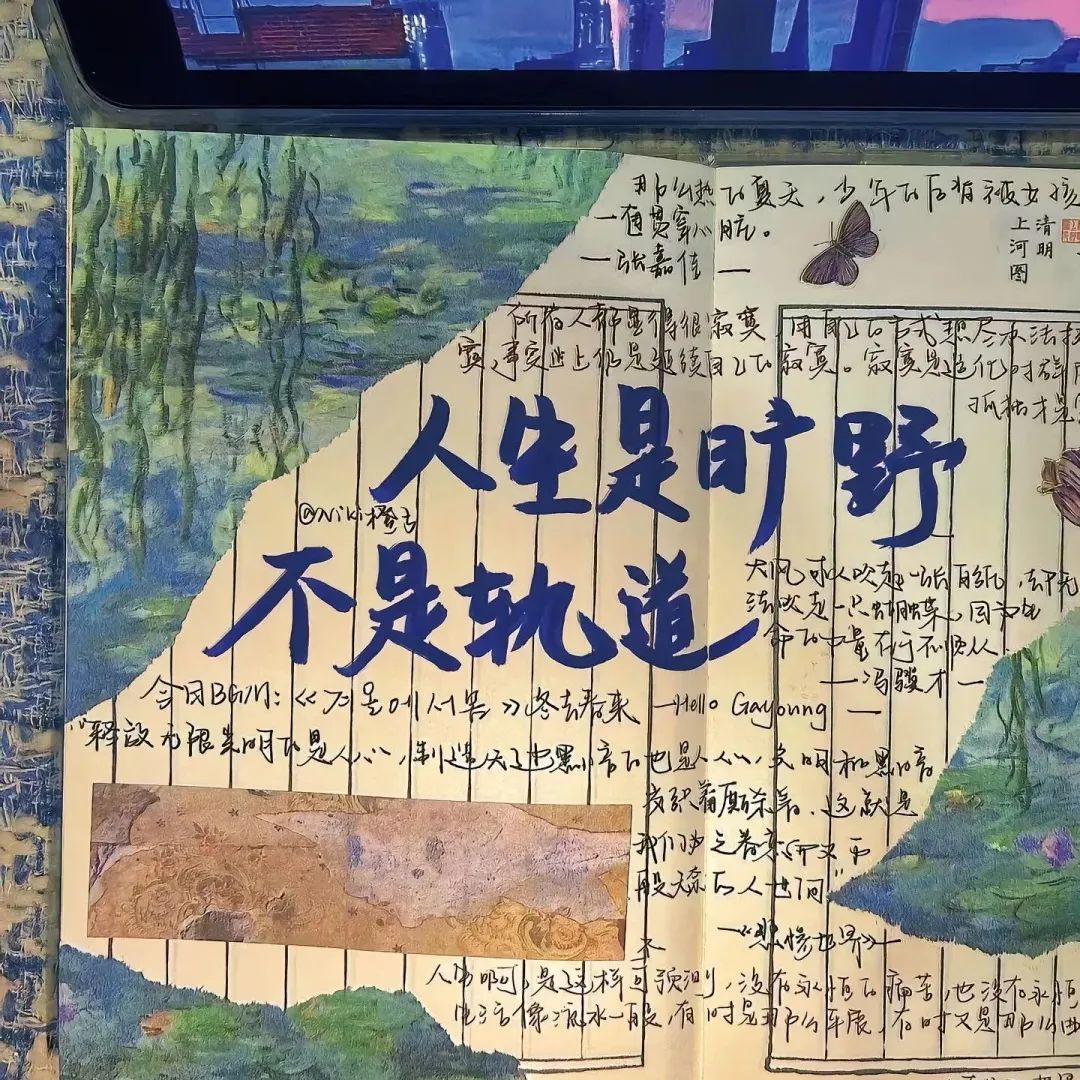 那么热的夏天，少年的后背被女孩
一直贯穿心脏。
—张嘉佳—
清明
上河图
所有人都显得很寂寞 用自己的方式想尽办法
寞，事实上仍是延续自己的寂寞。寂寞是造化对群
孤独才是
人生是旷野
@Niki橙子
不是轨道
大风可以吹起一张白纸，却无
法吹走一只蝴蝶，因为生
命的力量在于不顺从
—冯骥才—
今日BGM：《겨울에서 봄》冬去春来 —Hello Gayoung—
“释放无限光明的是人心，制造无边黑暗的也是人心，光明和黑暗
交织着厮杀着，这就是
我们为之眷恋而又万
般无奈的人世间”
—《悲惨世界》—
不
人生啊，是这样可预测，没有永恒的痛苦，也没有永恒
生活像流水一般，有时是那么平展，有时又是那么曲